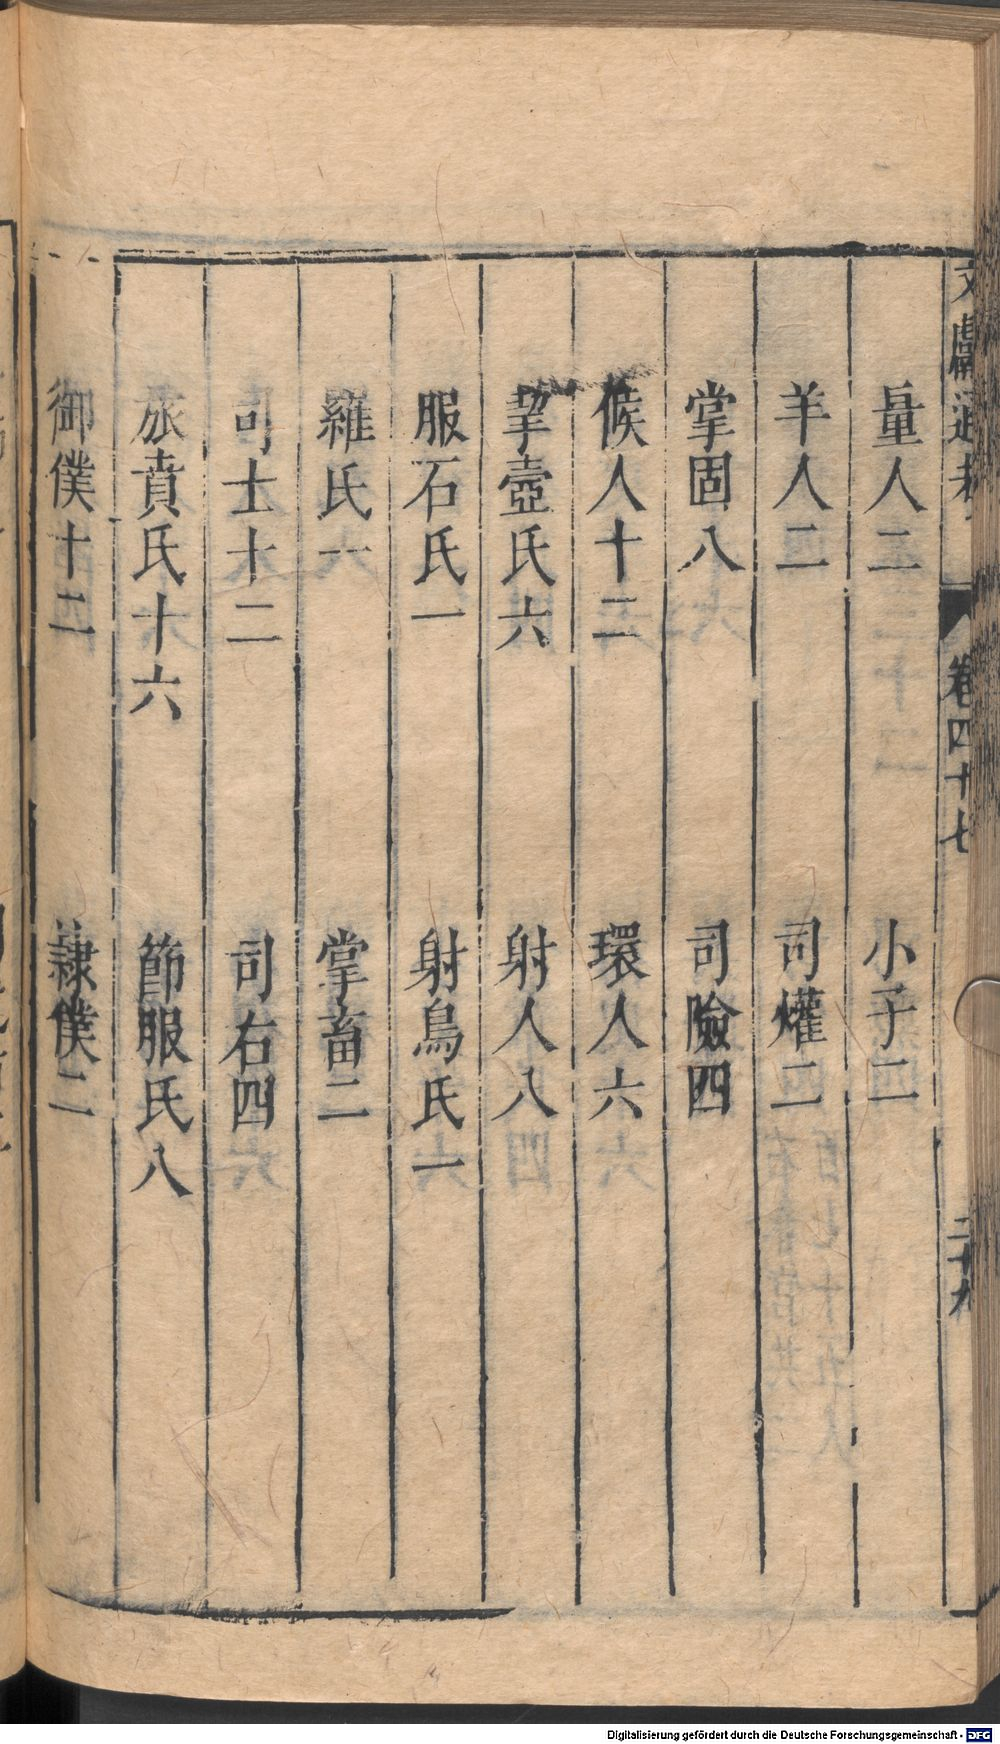 文獻通考 卷四十七 二十九
量人二 小子二
羊人二 司爟二
掌固八 司險四
候人十二 環人六
挈壺氏六 射人八
服石氏一 射鳥氏一
羅氏一 掌畜二
司士十二 司右四
旅賁氏十六 節服氏八
御僕十二 隷僕二
Digitalisierung gefördert durch die Deutsche Forschungsgemeinschaft - DFG